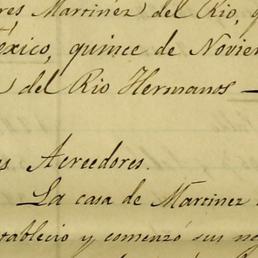 res Martinez del Rio,
éxico, quince de Noviem
del Rio Hermanos
s Acreedores.
La casa de Martinez
tablecio y comenzó sus ne